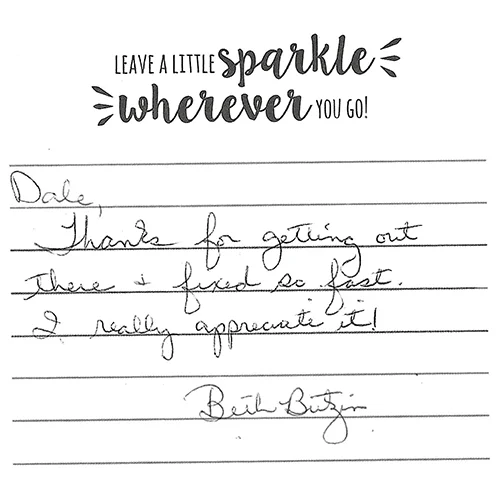 LEAVE A LITTLE sparkle
wherever YOU GO!
Dale,
Thanks for getting out
there & fixed so fast.
I really appreciate it!
Beth Butzin